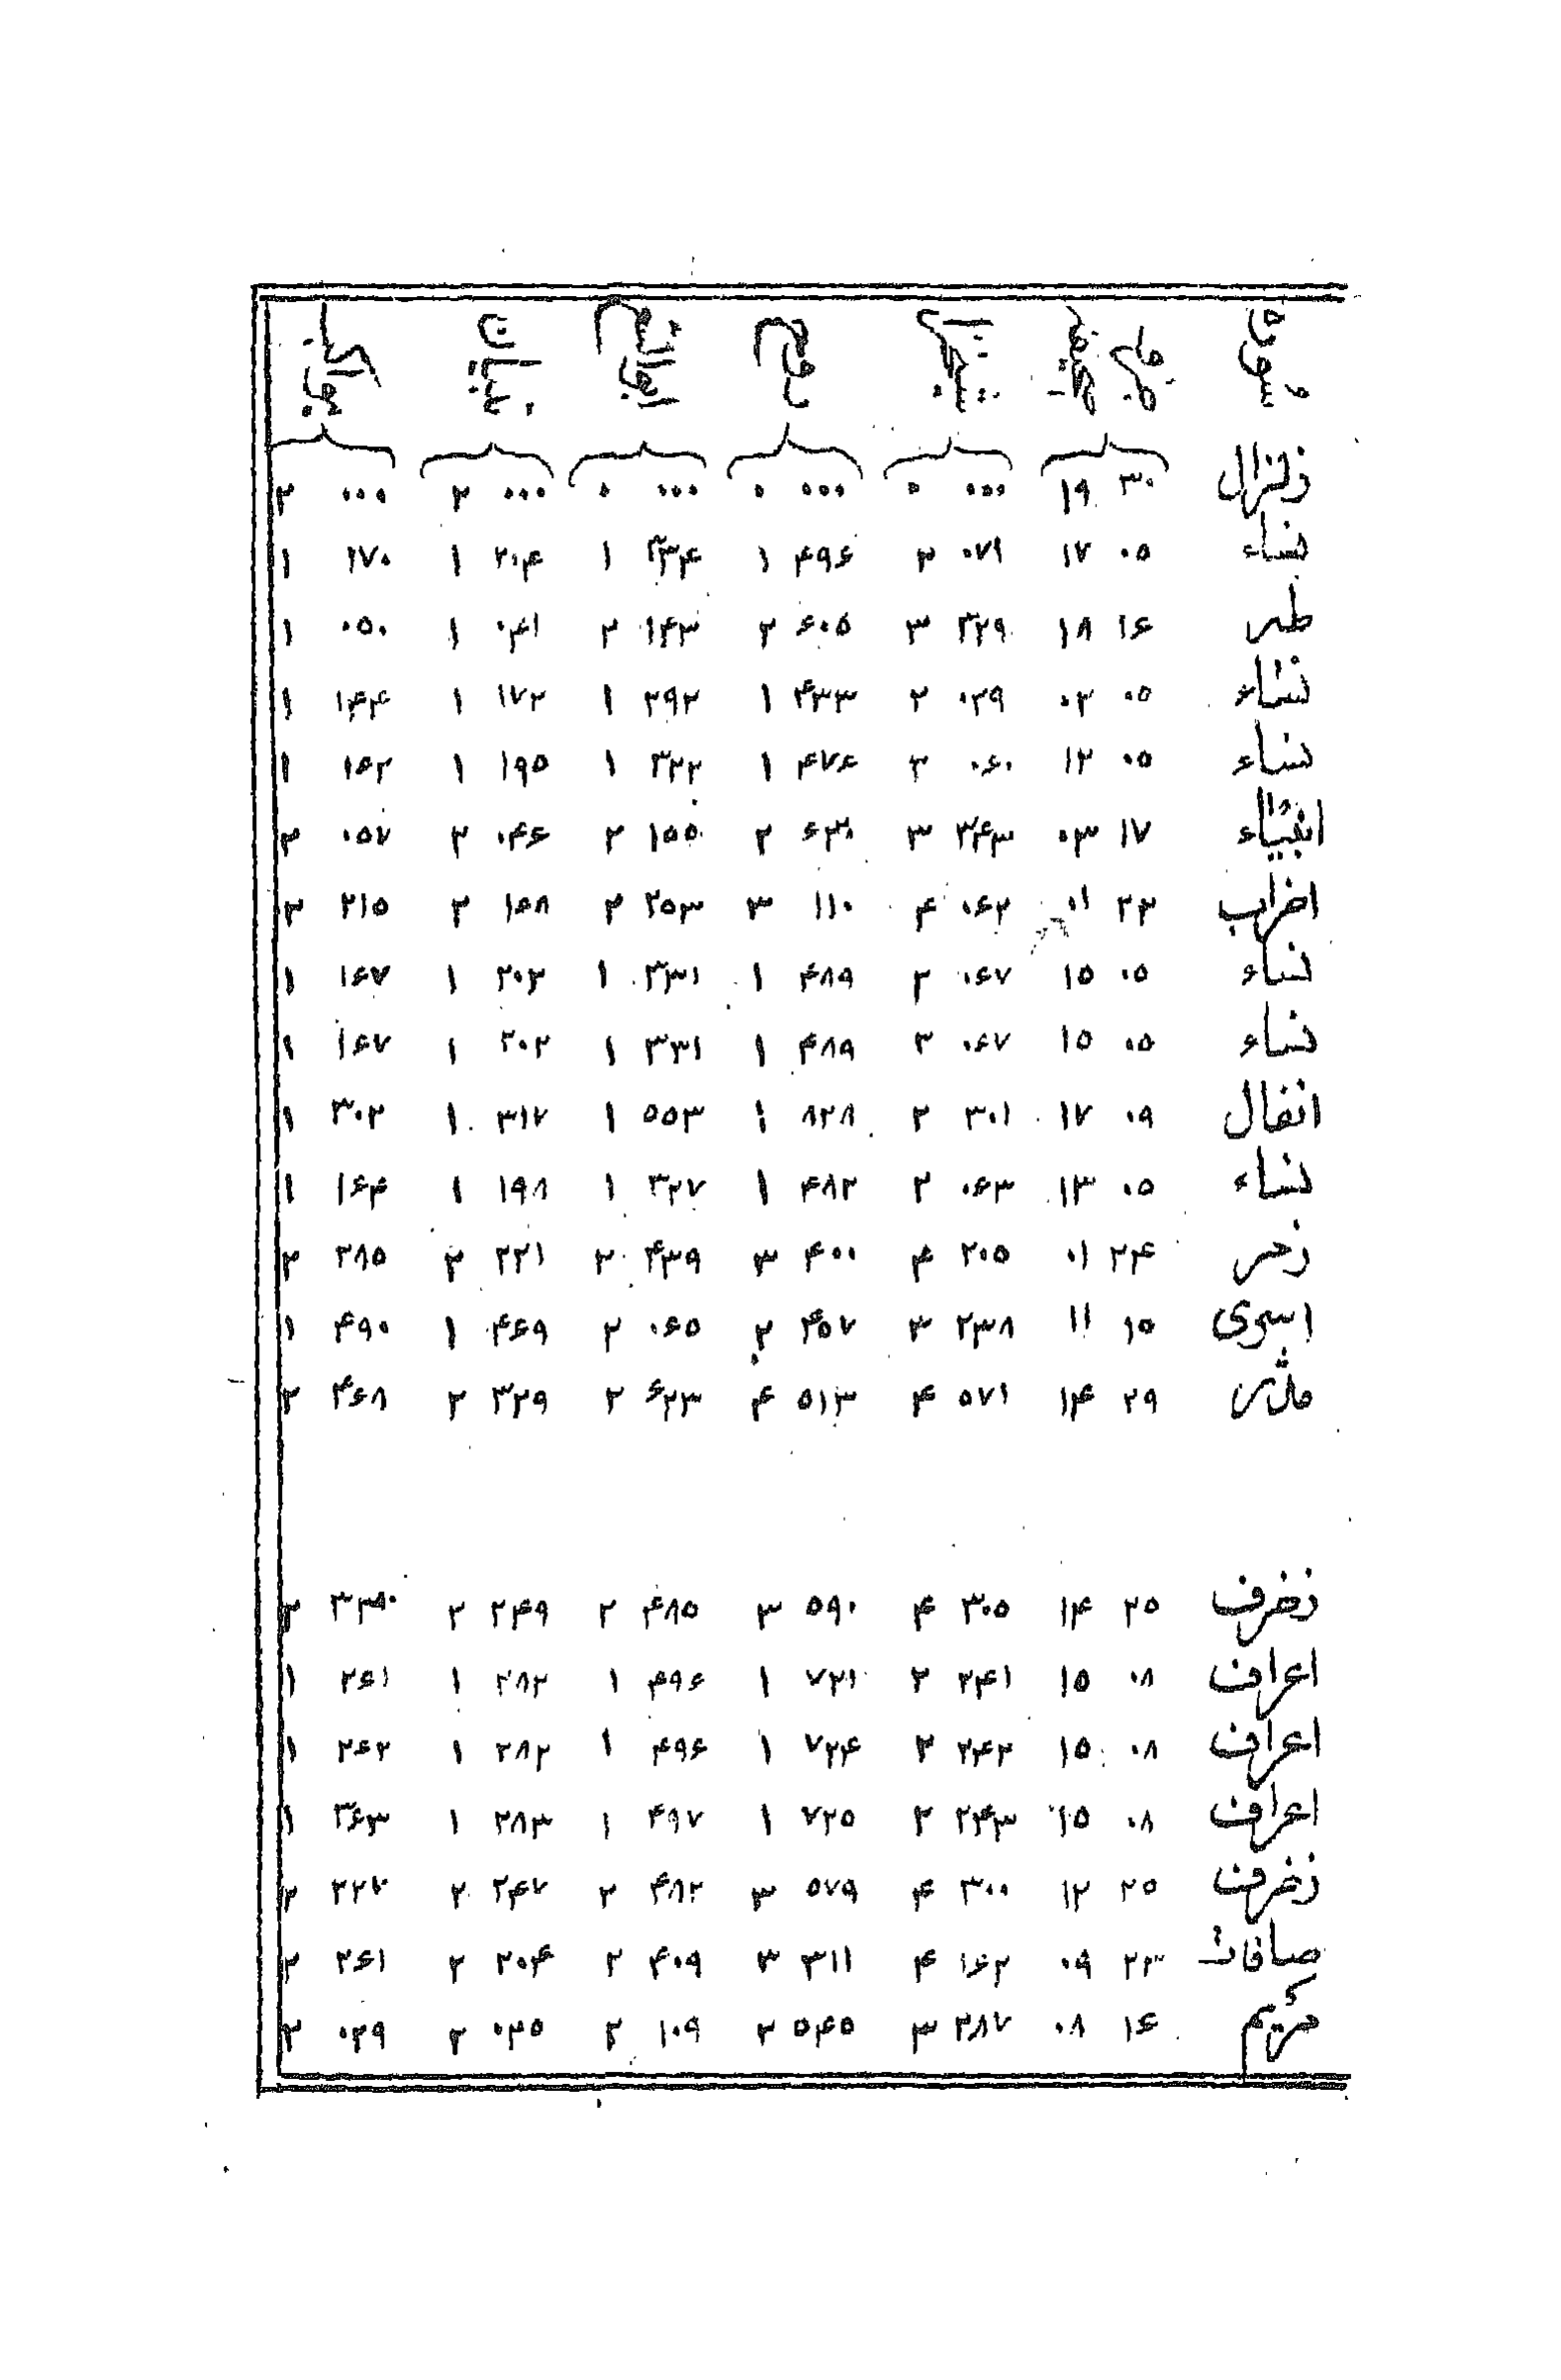 زلزال ۳۰ ۱۹ ۰۰۰ ۰ ۰۰۰ ۰ ۰۰۰ ۰ ۰۰۰ ۲ ۰۰۰ ۲
نساء ۰۵ ۱۷ ۰۷۱ ۲ ۴۹۶ ۱ ۳۳۴ ۱ ۲۰۴ ۱ ۱۷۰ ۱
طه ۱۶ ۱۸ ۳۲۹ ۳ ۶۰۵ ۲ ۱۴۳ ۲ ۰۴۱ ۱ ۰۵۰ ۱
نساء ۰۵ ۰۲ ۰۲۹ ۲ ۴۳۳ ۱ ۲۹۲ ۱ ۱۷۲ ۱ ۱۴۴ ۱
نساء ۰۵ ۱۲ ۰۶۰ ۲ ۴۷۶ ۱ ۳۲۲ ۱ ۱۹۵ ۱ ۱۶۲ ۱
انبیاء ۱۷ ۰۳ ۳۴۳ ۳ ۶۳۸ ۲ ۱۵۵ ۲ ۰۴۶ ۲ ۰۵۷ ۲
احزاب ۲۳ ۰۱ ۰۶۲ ۴ ۱۱۰ ۳ ۲۵۳ ۲ ۱۶۸ ۲ ۲۱۵ ۲
نساء ۰۵ ۱۵ ۰۶۷ ۲ ۴۸۹ ۱ ۳۳۱ ۱ ۲۰۲ ۱ ۱۶۷ ۱
نساء ۰۵ ۱۵ ۰۶۷ ۲ ۴۸۹ ۱ ۳۳۱ ۱ ۲۰۲ ۱ ۱۶۷ ۱
انفال ۰۹ ۱۷ ۳۰۱ ۲ ۸۲۸ ۱ ۵۵۳ ۱ ۳۱۷ ۱ ۳۰۲ ۱
نساء ۰۵ ۱۳ ۰۶۳ ۲ ۴۸۲ ۱ ۳۲۷ ۱ ۱۹۸ ۱ ۱۶۴ ۱
زمر ۲۴ ۰۱ ۲۰۵ ۴ ۴۰۰ ۳ ۴۳۹ ۲ ۲۲۱ ۲ ۲۸۵ ۲
اسری ۱۵ ۱۱ ۲۳۸ ۳ ۴۵۷ ۲ ۰۶۵ ۲ ۴۶۹ ۱ ۴۹۰ ۱
مدثر ۲۹ ۱۴ ۵۷۱ ۴ ۵۱۳ ۴ ۶۲۳ ۲ ۳۲۹ ۲ ۴۶۸ ۲
زخرف ۲۵ ۱۴ ۳۰۵ ۴ ۵۹۰ ۳ ۴۸۵ ۲ ۲۴۹ ۲ ۲
اعراف ۰۸ ۱۵ ۲۴۱ ۲ ۷۲۱ ۱ ۴۹۶ ۱ ۲۸۲ ۱ ۲۶۱ ۱
اعراف ۰۸ ۱۵ ۲۴۲ ۲ ۷۲۴ ۱ ۴۹۶ ۱ ۲۸۲ ۱ ۲۶۲ ۱
اعراف ۰۸ ۱۵ ۲۴۳ ۲ ۷۲۵ ۱ ۴۹۷ ۱ ۲۸۳ ۱ ۲۶۳ ۱
زخرف ۲۵ ۱۲ ۳۰۰ ۴ ۵۷۹ ۳ ۴۸۲ ۲ ۲۴۷ ۲ ۲۲۷ ۲
صافات ۲۳ ۰۹ ۱۶۲ ۴ ۳۱۱ ۳ ۴۰۹ ۲ ۲۰۴ ۲ ۲۶۱ ۲
مریم ۱۶ ۰۸ ۲۸۷ ۳ ۵۴۵ ۲ ۱۰۹ ۲ ۰۲۵ ۲ ۰۲۹ ۲